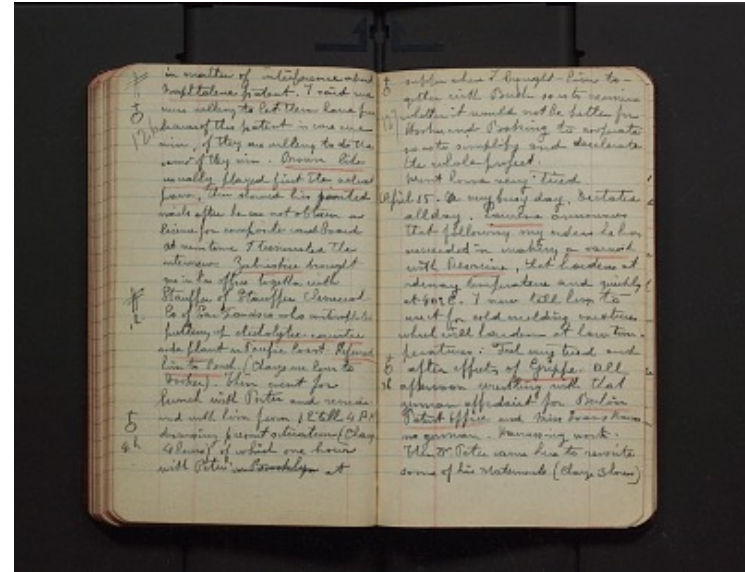 in matter of interference about
Naphtalene patent. I said we
were willing to let them have free
license of this patent in case we
win, if they are willing to do the
same if they win. Brown like
usually played first the select
pawn, then showed his pointed
nails after he can not obtain a
license for composite card board
At new tone I terminated the
interview. Zabriskie brought
me in his office together with
Stauffer of Stauffer Chemical
Co of San Francisco who contemplates
putting up electrolytic caustic
soda plant on Pacific Coast. Referred
him to (Charge one hour to
Hooker). Then went for
lunch with Porter and remai-
ned with him from 1 till 4 P.M
discussing present situation (Charge
4 hours) of which one hour
with Peter in Brooklyn at
supper when I brought him to-
gether with Bush so as to examine
whether it would not be better for
Hooker and to cooperate
so as to simplify and accelerate
the whole project.
Went home very tired
April 15. A very busy day, Dictated
all day. announces
that following my orders he has
succeeded in making a varnish
with , that hardens at
ordinary temperature and quickly
at 40°C. I now tell him to
use it for cold molding varieties
which will harden at low tem-
peratures. Feel very tired and
after effects of Grippe. All
afternoon wrestling with that
german affidavit for Berlin
Patent Office and Miss knows
no german. Harassing work.
Then Dr. Peter came here to rewrite
some of his statements (Charge 3 hours)